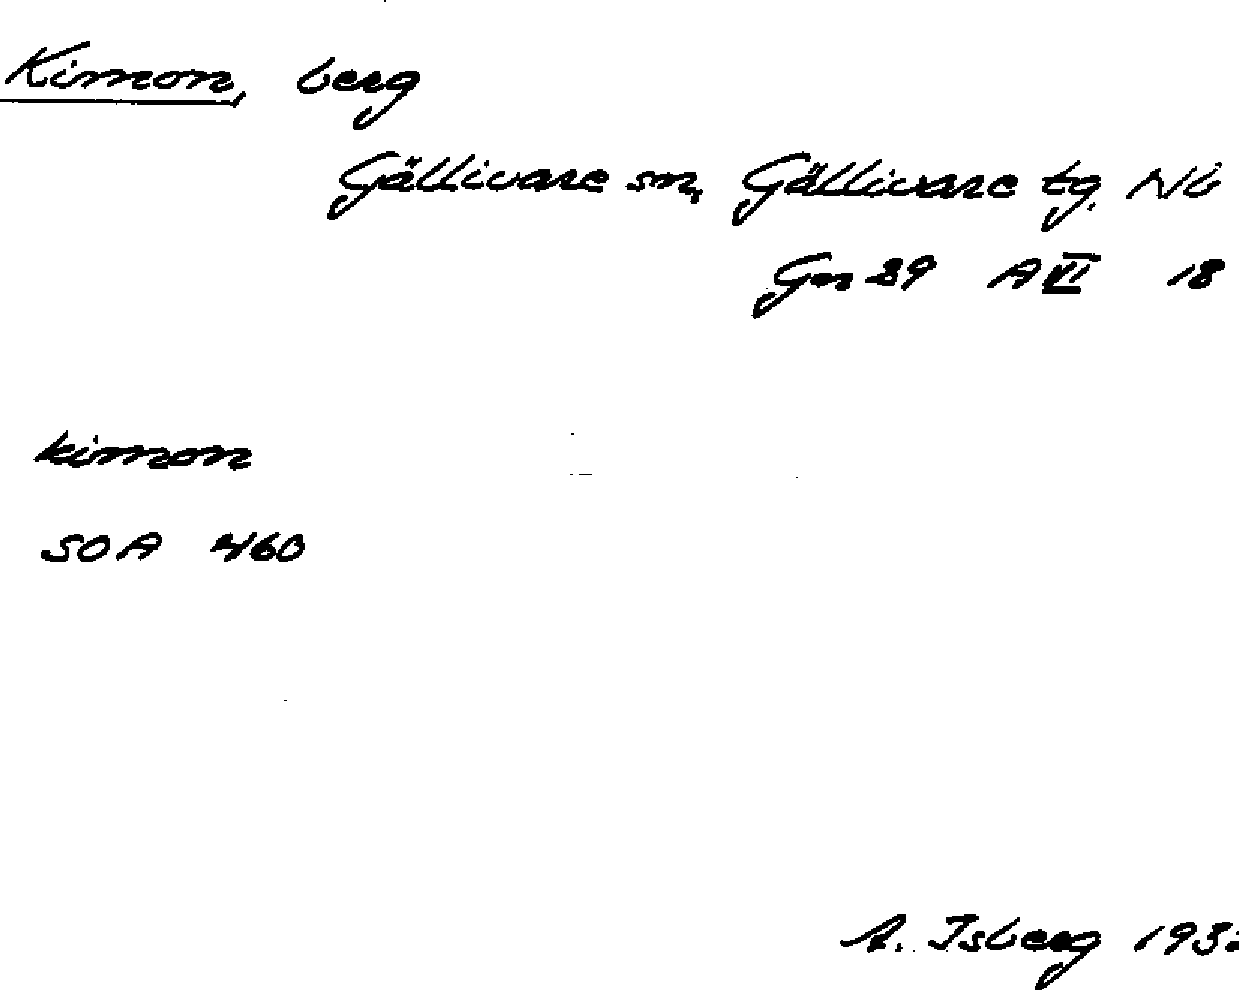 Kimon, berg
Gällivare sn, Gällivare tg. Nb
Gn 29 A VI 18
kimon
SOA 460
A. Isberg